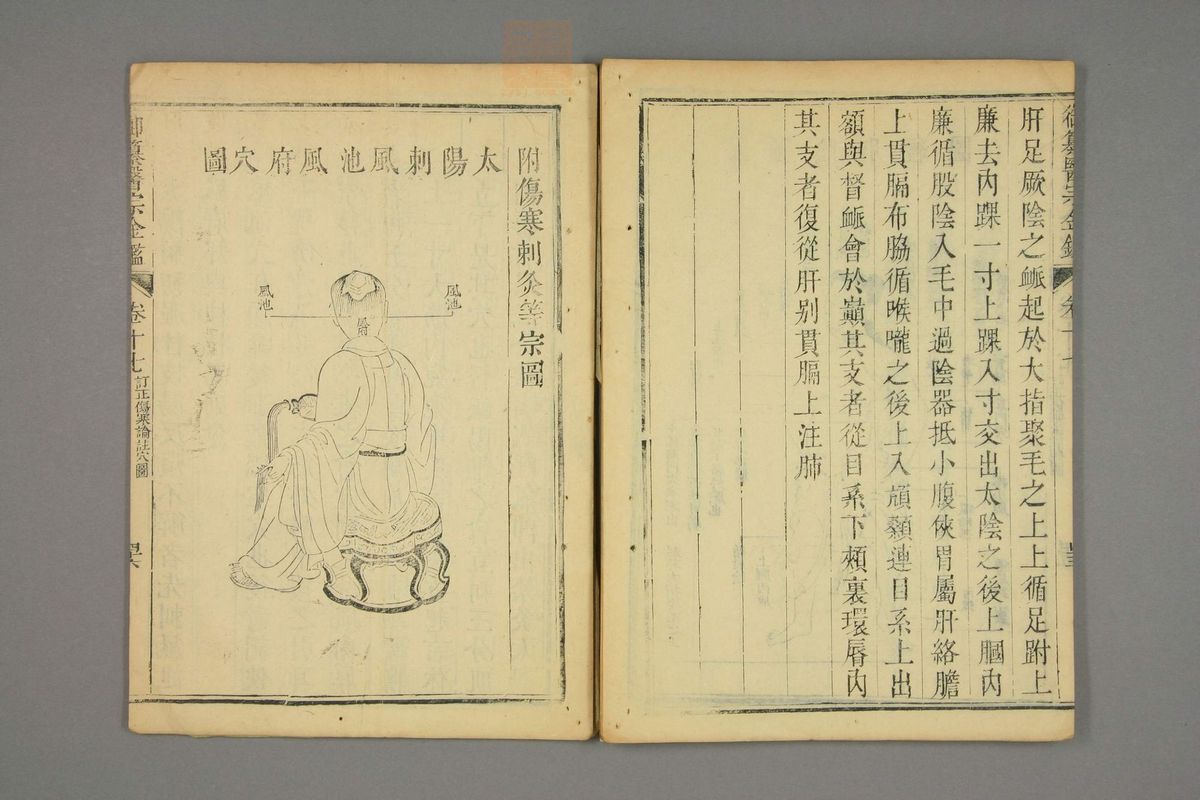 肝足厥陰之𧖴起於大指聚毛之上上循足跗上
廉去內踝一寸上踝八寸交出太陰之後上膕內
廉循股陰入毛中過陰器抵小腹俠胃屬肝絡膽
上貫膈布脇循喉嚨之後上入頏顙連目系上出
額與督𧖴會於巔其支者從目系下頰裏環脣內
其支者復從肝別貫膈上注肺
附傷寒刺灸等宗圖
太陽刺風池風府穴圖
風池
風池
御纂醫宗金鑑
卷十七
訂正傷寒論註穴圖